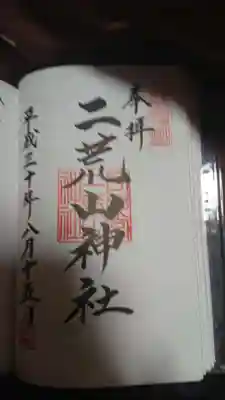 奉拝
二荒山神社
平成三十年八月十五日